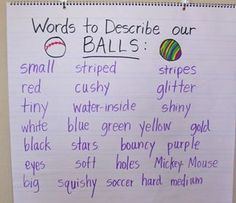 Words to Describe our
BALLS:
small striped stripes
red cushy glitter
tiny water-inside shiny
white blue green yellow gold
black stars bouncy purple
eyes soft holes Mickey Mouse
big squishy soccer hard medium